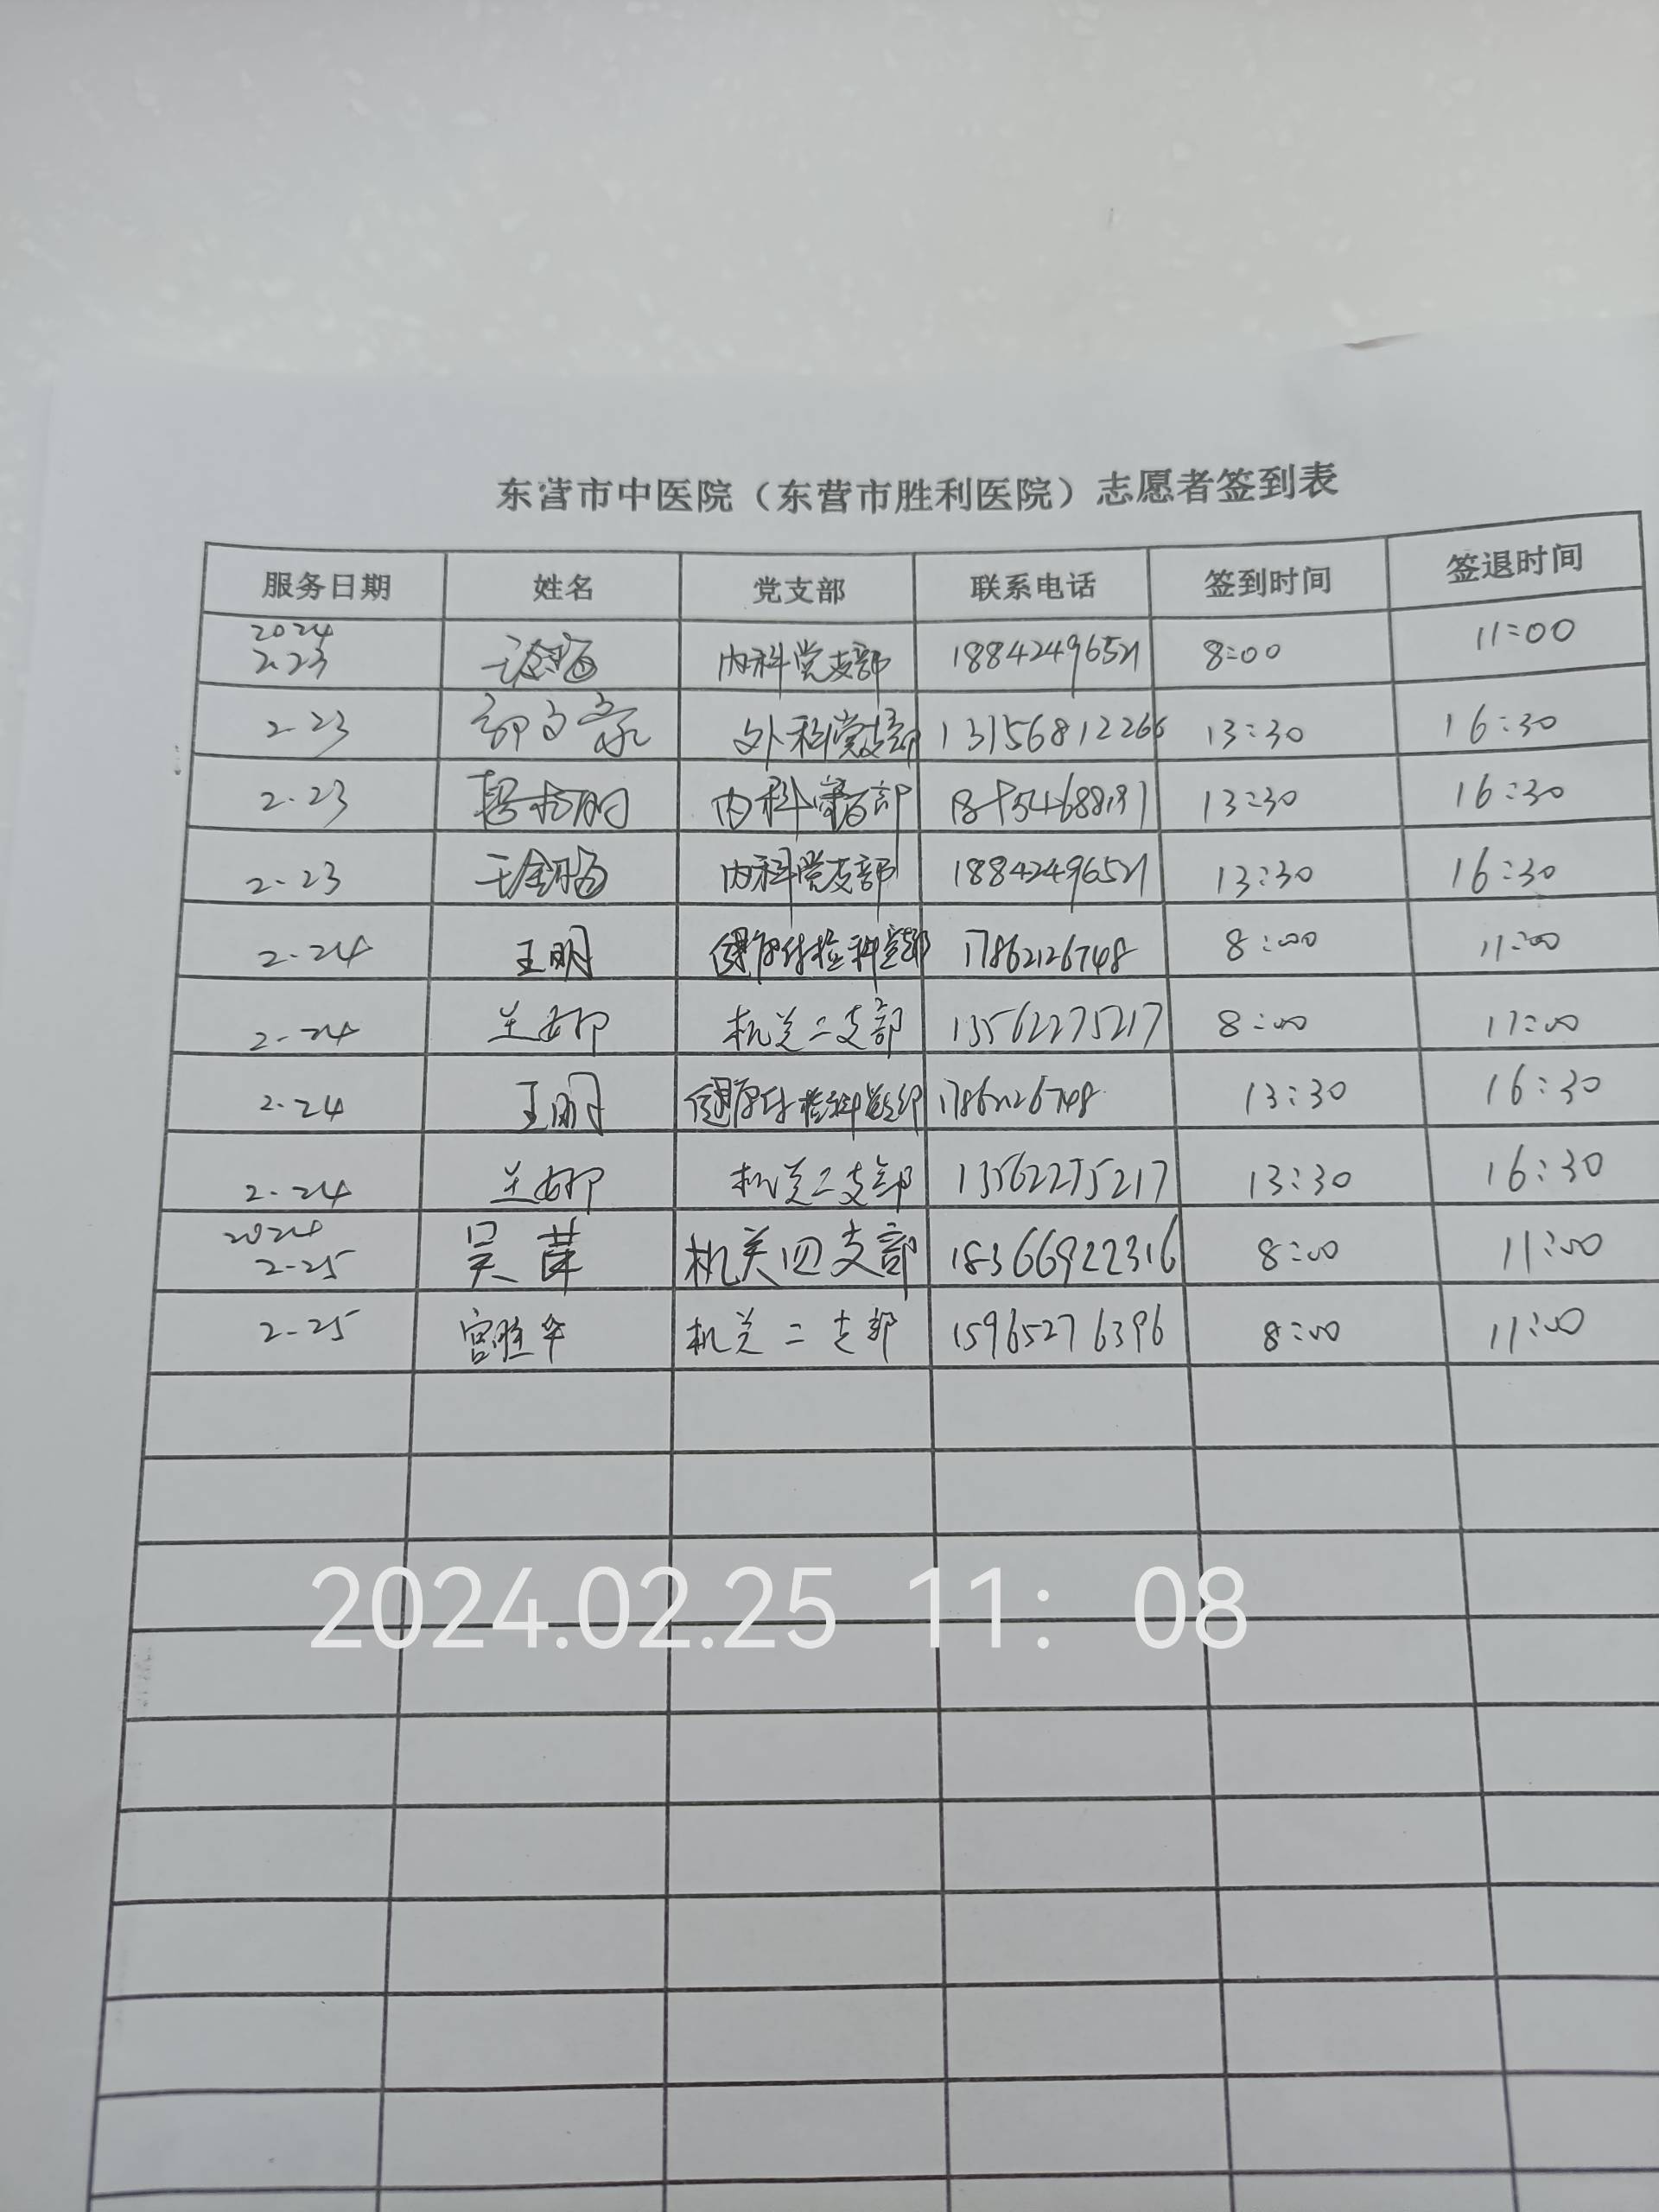 东营市中医院（东营市胜利医院）志愿者签到表
服务日期 姓名 党支部 联系电话 签到时间 签退时间
2024
2.23 内科党支部 18842496521 8:00 11:00
2-23 外科党支部 13156812266 13:30 16:30
2.23 内科 13:30 16:30
2-23 内科党支部 18842496521 13:30 16:30
2-24 王明 体检科党支部 17862126748 8:00 11:00
2-24 兰娜 机关二支部 13562275217 8:00 11:00
2.24 王明 体检科党支部 17862126748 13:30 16:30
2-24 兰娜 机关二支部 13562275217 13:30 16:30
2024
2-25 吴萍 机关四支部 18366922316 8:00 11:00
2-25 宫胜华 机关二支部 15965276396 8:00 11:00
2024.02.25 11: 08